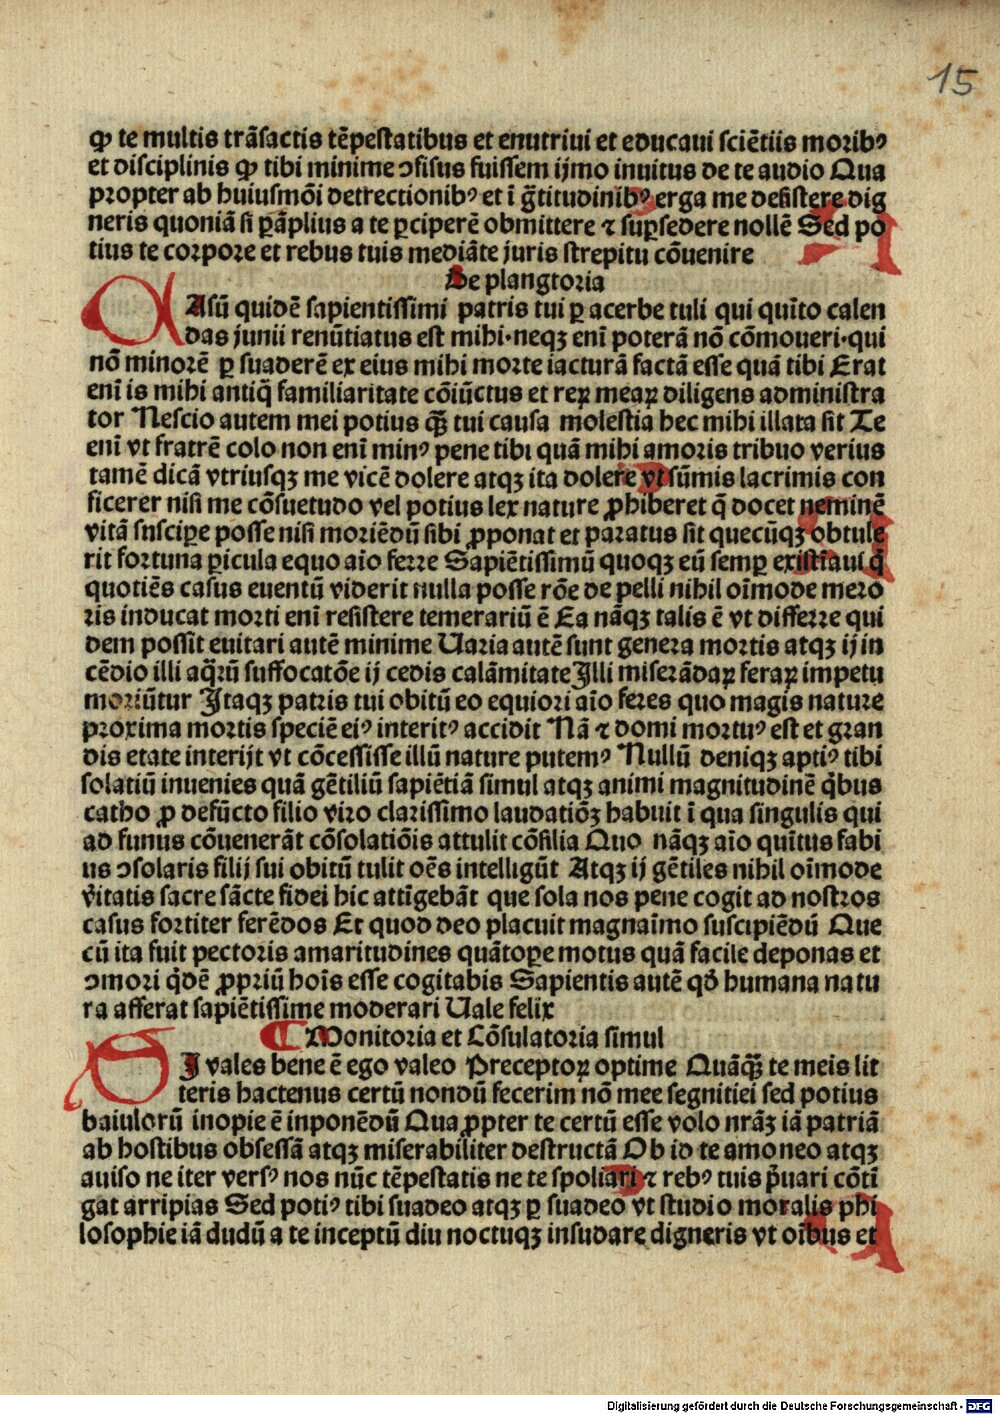 15
ꝙ te multis trãſactis tẽpeſtatibus et enutriui et educaui ſciẽtiis moribꝰ
et diſciplinis ꝙ tibi minime ↄſiſus fuiſſem ijmo inuitus de te audio Qua
propter ab huiuſmõi detrectionibꝰ et ĩ g̃titudinibꝰ erga me deſiſtere dig
neris quoniã ſi ꝑãplius a te ꝑciperẽ obmittere ⁊ suꝑſedere nollẽ Sed po
tius te corpore et rebus tuis mediãte juris ſtrepitu cõuenire
De plangtoria
CAſũ quidẽ ſapientiſſimi patris tui ꝑ acerbe tuli qui quĩto calen
das junii renũtiatus eſt mihi·neqꝫ enĩ poterã nõ cõmoueri·qui
nõ minorẽ ꝑ ſuaderẽ ex eius mihi morte iacturã factã eſſe quã tibi Erat
enĩ is mihi antiq̃ familiaritate cõiũctus et reꝝ meaꝝ diligens adminiſtra
tor Neſcio autem mei potius q̃ꝫ tui cauſa moleſtia hec mihi illata ſit Te
enĩ vt fratrẽ colo non enĩ minꝰ pene tibi quã mihi amoris tribuo verius
tamẽ dicã vtriuſqꝫ me vicẽ dolere atqꝫ ita dolere vt ſũmis lacrimis con
ficerer niſi me cõſuetudo vel potius lex nature ꝓhiberet q̃ docet neminẽ
vitã ſuſcipe poſſe niſi moriẽdũ ſibi ꝓponat et paratus ſit quecũqꝫ obtule
rit fortuna ꝑicula equo aĩo ferre Sapiẽtiſſimũ quoqꝫ eũ ſemꝑ exiſtĩaui q̃
quotiẽs caſus euentũ viderit nulla poſſe rõe de pelli nihil oĩmode mero
ris inducat morti enĩ reſiſtere temerariũ ẽ Ea nãqꝫ talis ẽ vt differre qui
dem poſſit euitari autẽ minime Uaria autẽ sunt genera mortis atqꝫ ij in
cẽdio illi aq̃rũ ſuffocatõe ij cedis calãmitate Illi miſerãdaꝝ feraꝝ impetu
moriũtur Itaqꝫ patris tui obitũ eo equiori aĩo feres quo magis nature
proxima mortis ſpeciẽ eiꝰ interitꝰ accidit Nã ⁊ domi mortuꝰ eſt et gran
dis etate interijt vt cõceſſiſſe illũ nature putemꝰ Nullũ deniqꝫ aptiꝰ tibi
ſolatiũ inuenies quã gẽtiliũ ſapiẽtiã ſimul atqꝫ animi magnitudinẽ q̃bus
catho ꝓ defũcto filio viro clariſſimo laudatiõꝫ habuit ĩ qua ſingulis qui
ad funus cõuenerãt cõſolatiõis attulit cõſilia Quo nãqꝫ aĩo quĩtus fabi
us ↄſolaris filij ſui obitũ tulit oẽs intelligũt Atqꝫ ij gẽtiles nihil oĩmode
v̾itatis ſacre ſãcte fidei hic attĩgebãt que ſola nos pene cogit ad noſtros
caſus fortiter ferẽdos Et quod deo placuit magnaĩmo ſuſcipiẽdũ Que
cũ ita fuit pectoris amaritudines quãtope motus quã facile deponas et
ↄmori q̃dẽ ꝓpriũ hoĩs eſſe cogitabis Sapientis autẽ qđ humana natu
ra afferat ſapiẽtiſſime moderari Uale felix
¶ Monitoria et Cõſulatoria ſimul
SI vales bene ẽ ego valeo Preceptor optime Quãqꝫ te meis lit
teris hactenus certũ nondũ fecerim nõ mee ſegnitiei ſed potius
baiulorũ inopie ẽ inponẽdũ Qua ꝓpter te certũ eſſe volo nrãꝫ iã patriã
ab hoſtibus obſeſſã atqꝫ miſerabiliter deſtructã Ob id te amo neo atqꝫ
auiſo ne iter verſꝰ nos nũc tẽpeſtatis ne te ſpoliari ⁊ rebꝰ tuis p̃uari cõtĩ
gat arripias Sed potiꝰ tibi ſuadeo atqꝫ ꝑ ſuadeo vt ſtudio moralis phi
loſophie iã dudũ a te inceptũ diu noctuqꝫ inſudare digneris vt oĩbus et
Digitalisierung gefördert durch die Deutsche Forschungsgemeinschaft - DFG